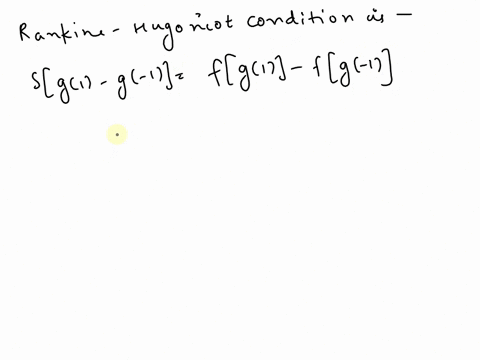 Rankine - Hugoniot condition is -
S[g(1) - g(-1)] = f[g(1)] - f[g(-1)]